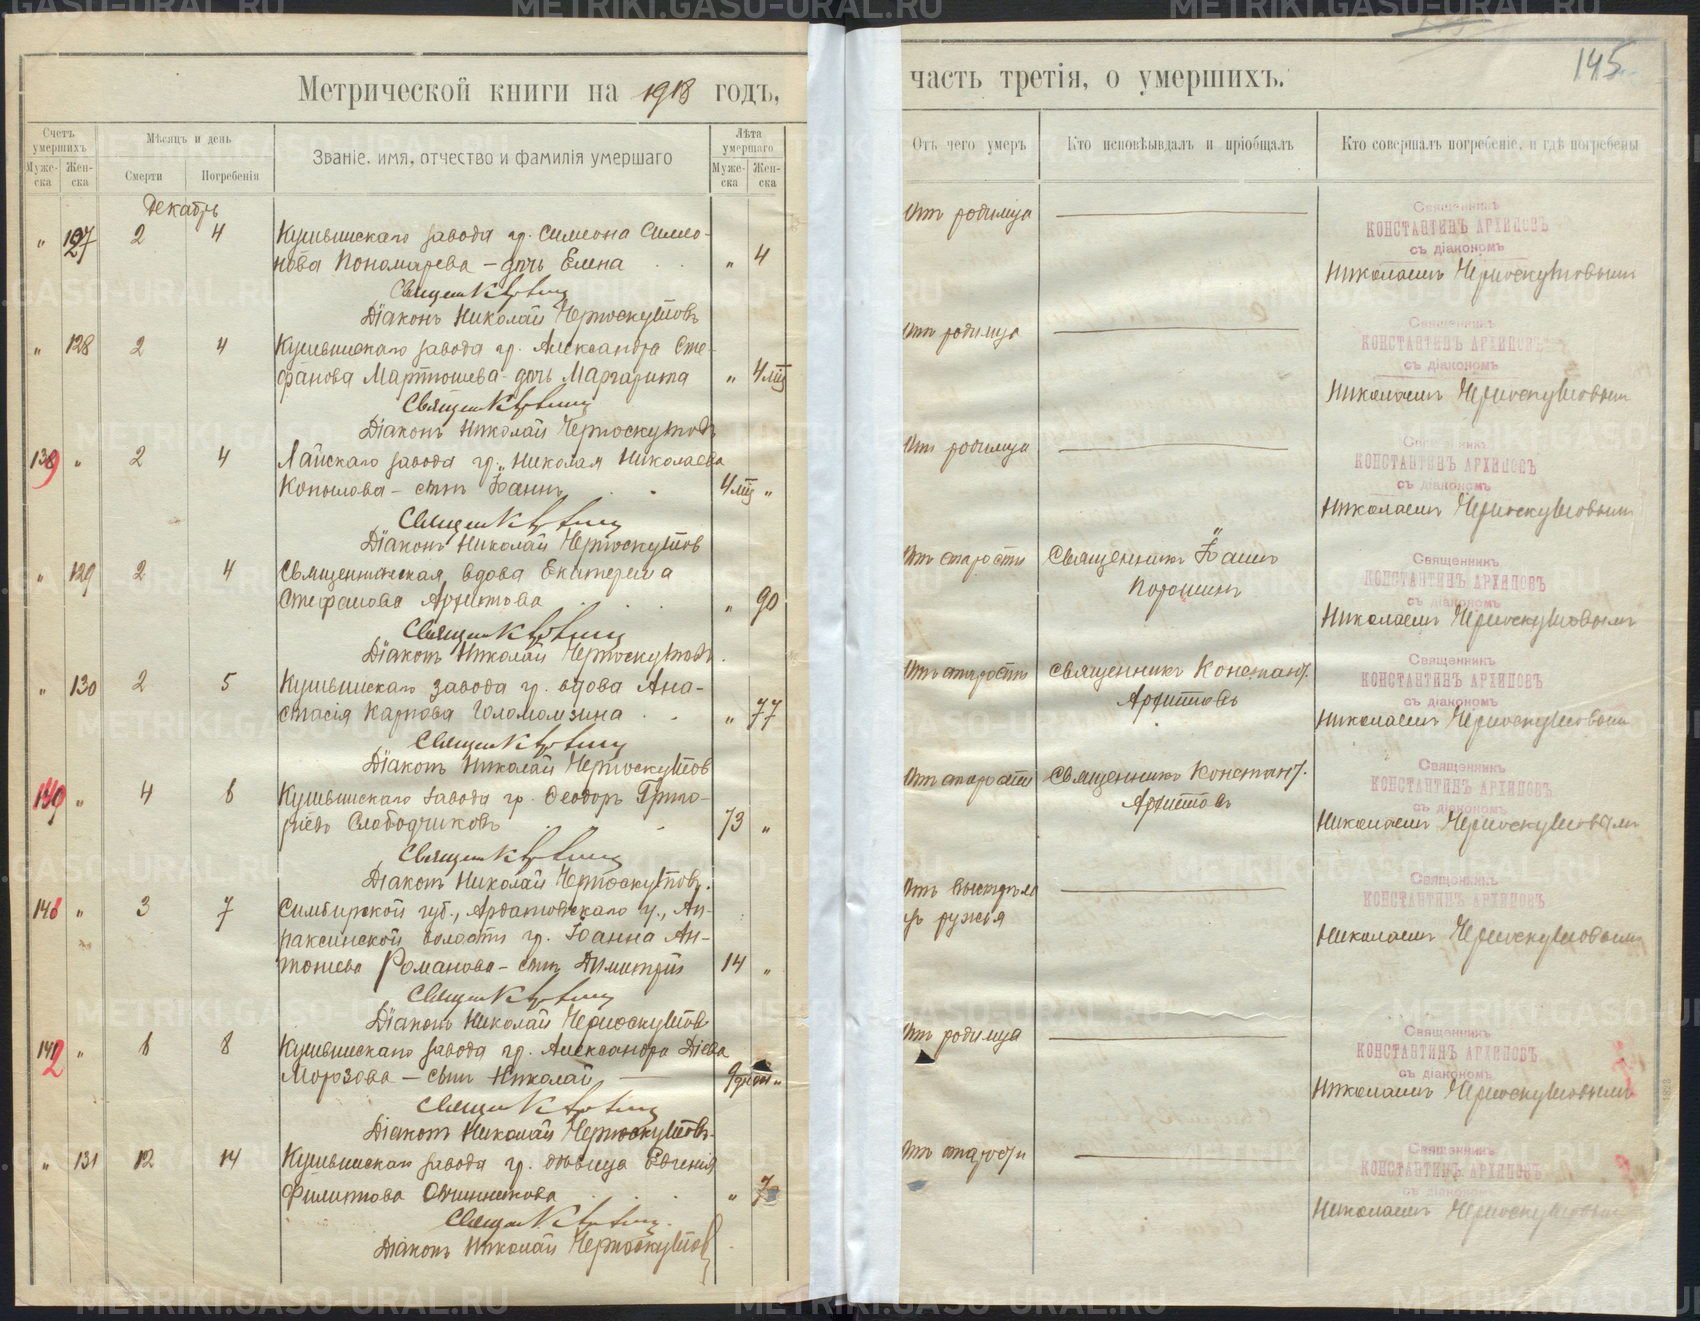 Метрической книги на 1918 годъ,
часть третія, о умершихъ.
145
Счетъ умершихъ
Мѣсяцъ и день
Званіе, имя, отчество и фамилія умершаго
Лѣта умершаго
Муже- ска
Жен- ска
Смерти
Погребенія
Муже- ска
Жен- ска
Отъ чего умеръ
Кто исповѣывдалъ и пріобщалъ
Кто совершалъ погребеніе, и гдѣ погребены
Декабрь
" 127 2 4 Кушвинскаго завода гр. Симеона Симео-
нова Пономарева – дочь Елена " 4
Діаконъ Николай Черноскутовъ
Отъ родимца
Священникъ
КОНСТАНТИНЪ АРХИПОВЪ
съ діакономъ
Николаемъ Черноскутовымъ
" 128 2 4 Кушвинскаго завода гр. Александра Сте-
фанова Мартюшева – дочь Маргарита " 4 мц
Діаконъ Николай Черноскутовъ
Отъ родимца
Священникъ
КОНСТАНТИНЪ АРХИПОВЪ
съ діакономъ
Николаемъ Черноскутовымъ
" 2 4 Лайскаго завода гр. Николая Николаева
Копылова – сынъ Іоаннъ 4 мц "
Діаконъ Николай Черноскутов
Отъ родимца
Священникъ
КОНСТАНТИНЪ АРХИПОВЪ
съ діакономъ
Николаемъ Черноскутовымъ
" 129 2 4 Священническая вдова Екатерина
Стефанова Архипова " 90
Діаконъ Николай Черноскутовъ
Отъ старости
Священникъ Іоаннъ
Порошинъ
Священникъ
КОНСТАНТИНЪ АРХИПОВЪ
съ діакономъ
Николаемъ Черноскутовымъ
" 130 2 5 Кушвинскаго завода гр. вдова Ана-
стасія Карпова Голомолзина " 77
Діаконъ Николай Черноскутов
Отъ старости
Священникъ Констант.
Архиповъ
Священникъ
КОНСТАНТИНЪ АРХИПОВЪ
съ діакономъ
Николаемъ Черноскутовым
" 4 6 Кушвинскаго завода гр. Ѳеодоръ Григо-
ріевъ Слободчиковъ 73 "
Діаконъ Николай Черноскутовъ.
Отъ старости
Священникъ Констант.
Архиповъ
Священникъ
КОНСТАНТИНЪ АРХИПОВЪ
съ діакономъ
Николаемъ Черноскутовымъ
" 3 7 Симбирской губ., Ардатовскаго у., Ап-
раксинской волости гр. Іоанна Ан-
тонова Романова – сынъ Димитрій 14 "
Діаконъ Николай Черноскутовъ
Отъ выстрѣла
изъ ружья
Священникъ
КОНСТАНТИНЪ АРХИПОВЪ
Николаемъ Черноскутовымъ
" 6 8 Кушвинскаго завода гр. Александра Діева
Морозова – сынъ Николай 9 дней "
Діаконъ Николай Черноскутовъ.
Отъ родимца
Священникъ
КОНСТАНТИНЪ АРХИПОВЪ
съ діакономъ
Николаемъ Черноскутовымъ
" 131 12 14 Кушвинскаго завода гр. дѣвица Евгенія
Филиппова Овчинникова "
Діаконъ Николай Черноскутов
Отъ старости
Священникъ
КОНСТАНТИНЪ АРХИПОВЪ
съ діакономъ
Николаемъ Черноскутовым
METRIKI.GASO-URAL.RU